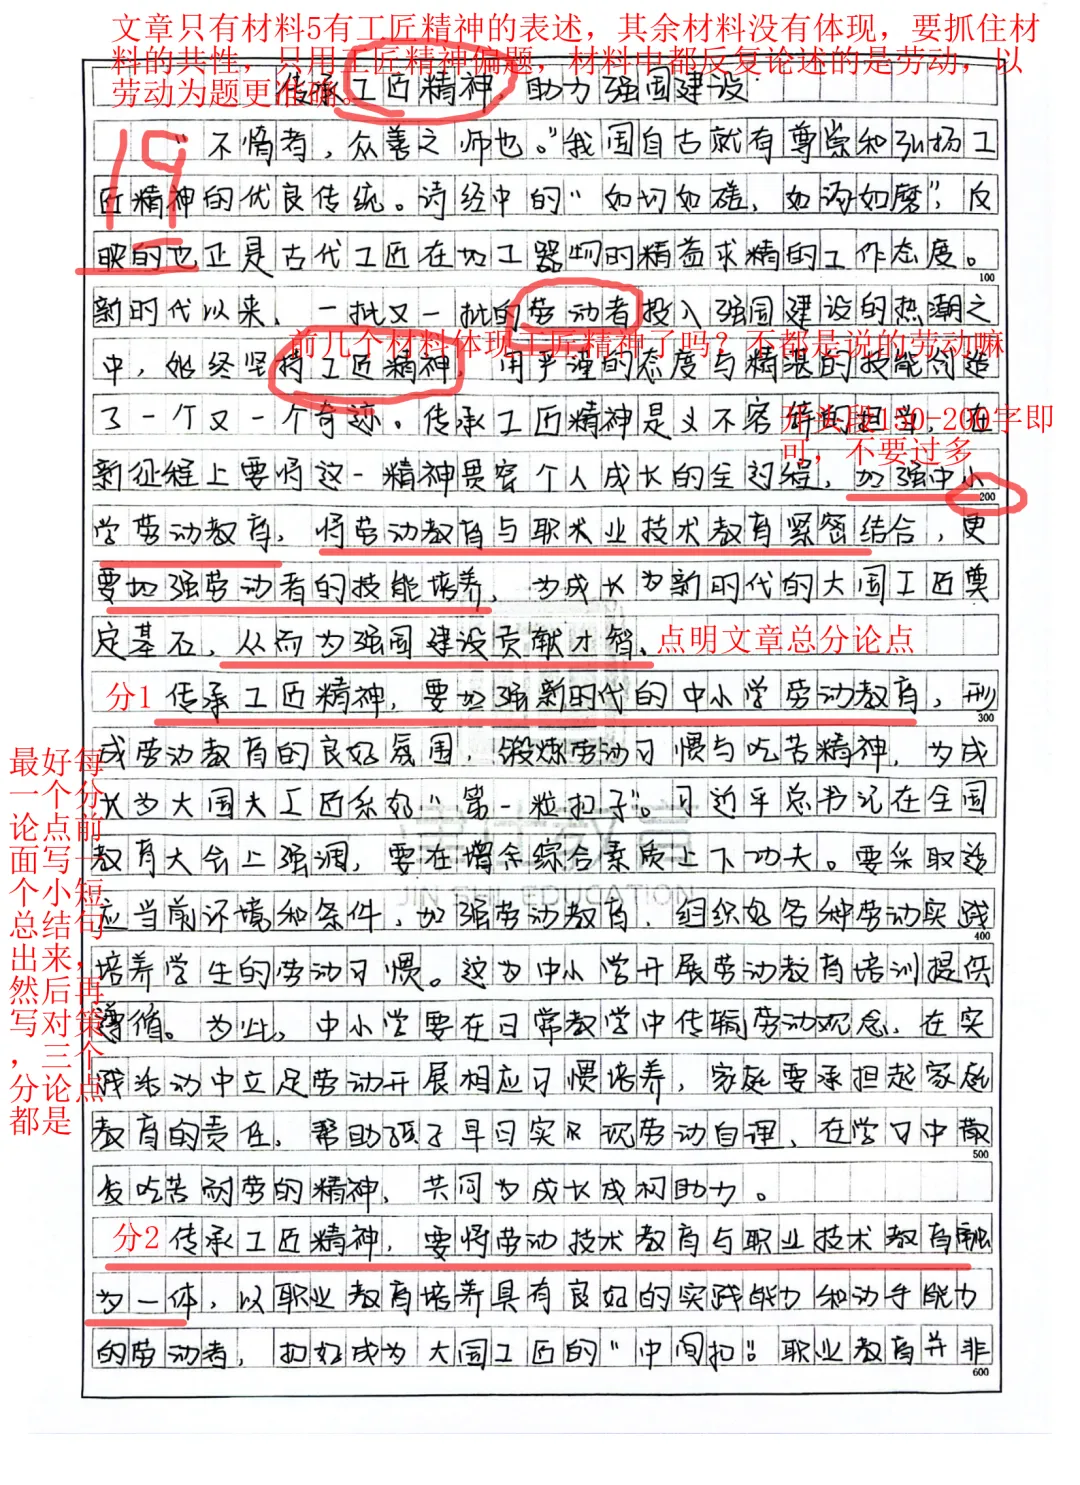 文章只有材料5有工匠精神的表述，其余材料没有体现，要抓住材
料的共性，只用工匠精神偏题，材料中都反复论述的是劳动，以
劳动为题更准确。
传承工匠精神，助力强国建设
19
"不惰者，众善之师也。"我国自古就有尊崇和弘扬工
匠精神的优良传统。诗经中的"如切如磋，如琢如磨"，反
映的也正是古代工匠在加工器物时精益求精的工作态度。
100
新时代以来，一批又一批的劳动者投入强国建设的热潮之
前几个材料体现工匠精神了吗？不都是说的劳动嘛
中，始终坚持工匠精神，用严谨的态度与精湛的技能创造
了一个又一个奇迹。传承工匠精神是义不容辞的担当，在
开头段150-200字即
可，不要过多
新征程上要将这一精神贯穿个人成长的全过程，加强中小
200
学劳动教育，将劳动教育与职术业技术教育紧密结合，更
要加强劳动者的技能培养，为成长为新时代的大国工匠奠
定基石，从而为强国建设贡献才智。
点明文章总分论点
分1
传承工匠精神，要加强新时代的中小学劳动教育，形
300
成劳动教育的良好氛围，锻炼劳动习惯与吃苦精神，为成
长为大国大工匠系好"第一粒扣子"。习近平总书记在全国
教育大会上强调，要在增强综合素质上下功夫。要采取适
应当前环境和条件，加强劳动教育，组织好各种劳动实践
400
培养学生的劳动习惯。这为中小学开展劳动教育培训提供
遵循。为此，中小学要在日常教学中传输劳动观念，在实
践活动中立足劳动开展相应习惯培养，家庭要承担起家庭
教育的责任，帮助孩子早日实现劳动自理，在学习中散
500
发吃苦耐劳的精神，共同为成长成材助力。
最好每
一个分
论点前
面写一
个小短
总结句
出来，
然后再
写对策
，三个
分论点
都是
分2
传承工匠精神，要将劳动技术教育与职业技术教育融
为一体，以职业教育培养具有良好的实践能力和动手能力
的劳动者，扣好成为大国工匠的"中间扣"。职业教育并非
600
JIN SHE EDUCATION